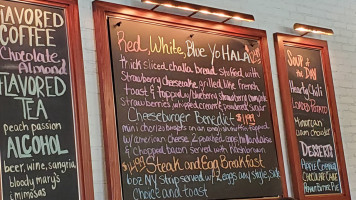 FLAVORED
COFFEE
Chocolate
Almond
FLAVORED
TEA
peach passion
ALCOHOL
beer, wine, sangria
bloody mary's
mimosas
Red, White, Blue Yo HALA
thick sliced challa bread, stuffed with
Strawberry cheesecake, grilled like french
toast & topped w/ blueberry
strawberries, whipped cream & powdered sugar
Cheeseburger Benedict $14.99
mini chorizo burgers on an english muffin topped
w/ american cheese, 2 poached eggs, hollandaise
& chopped bacon served with
$14.99 Steak and Egg Breakfast
6oz NY strip served w/ 2 eggs any style, side
choice and toast
FLAVORED
SOUP of the
DAY
Hearty Chili
LOADED POTATO
Manhattan
clam chowder
DESSERTS
Apple
Crumble
Chocolate
Peanut Butter Pie